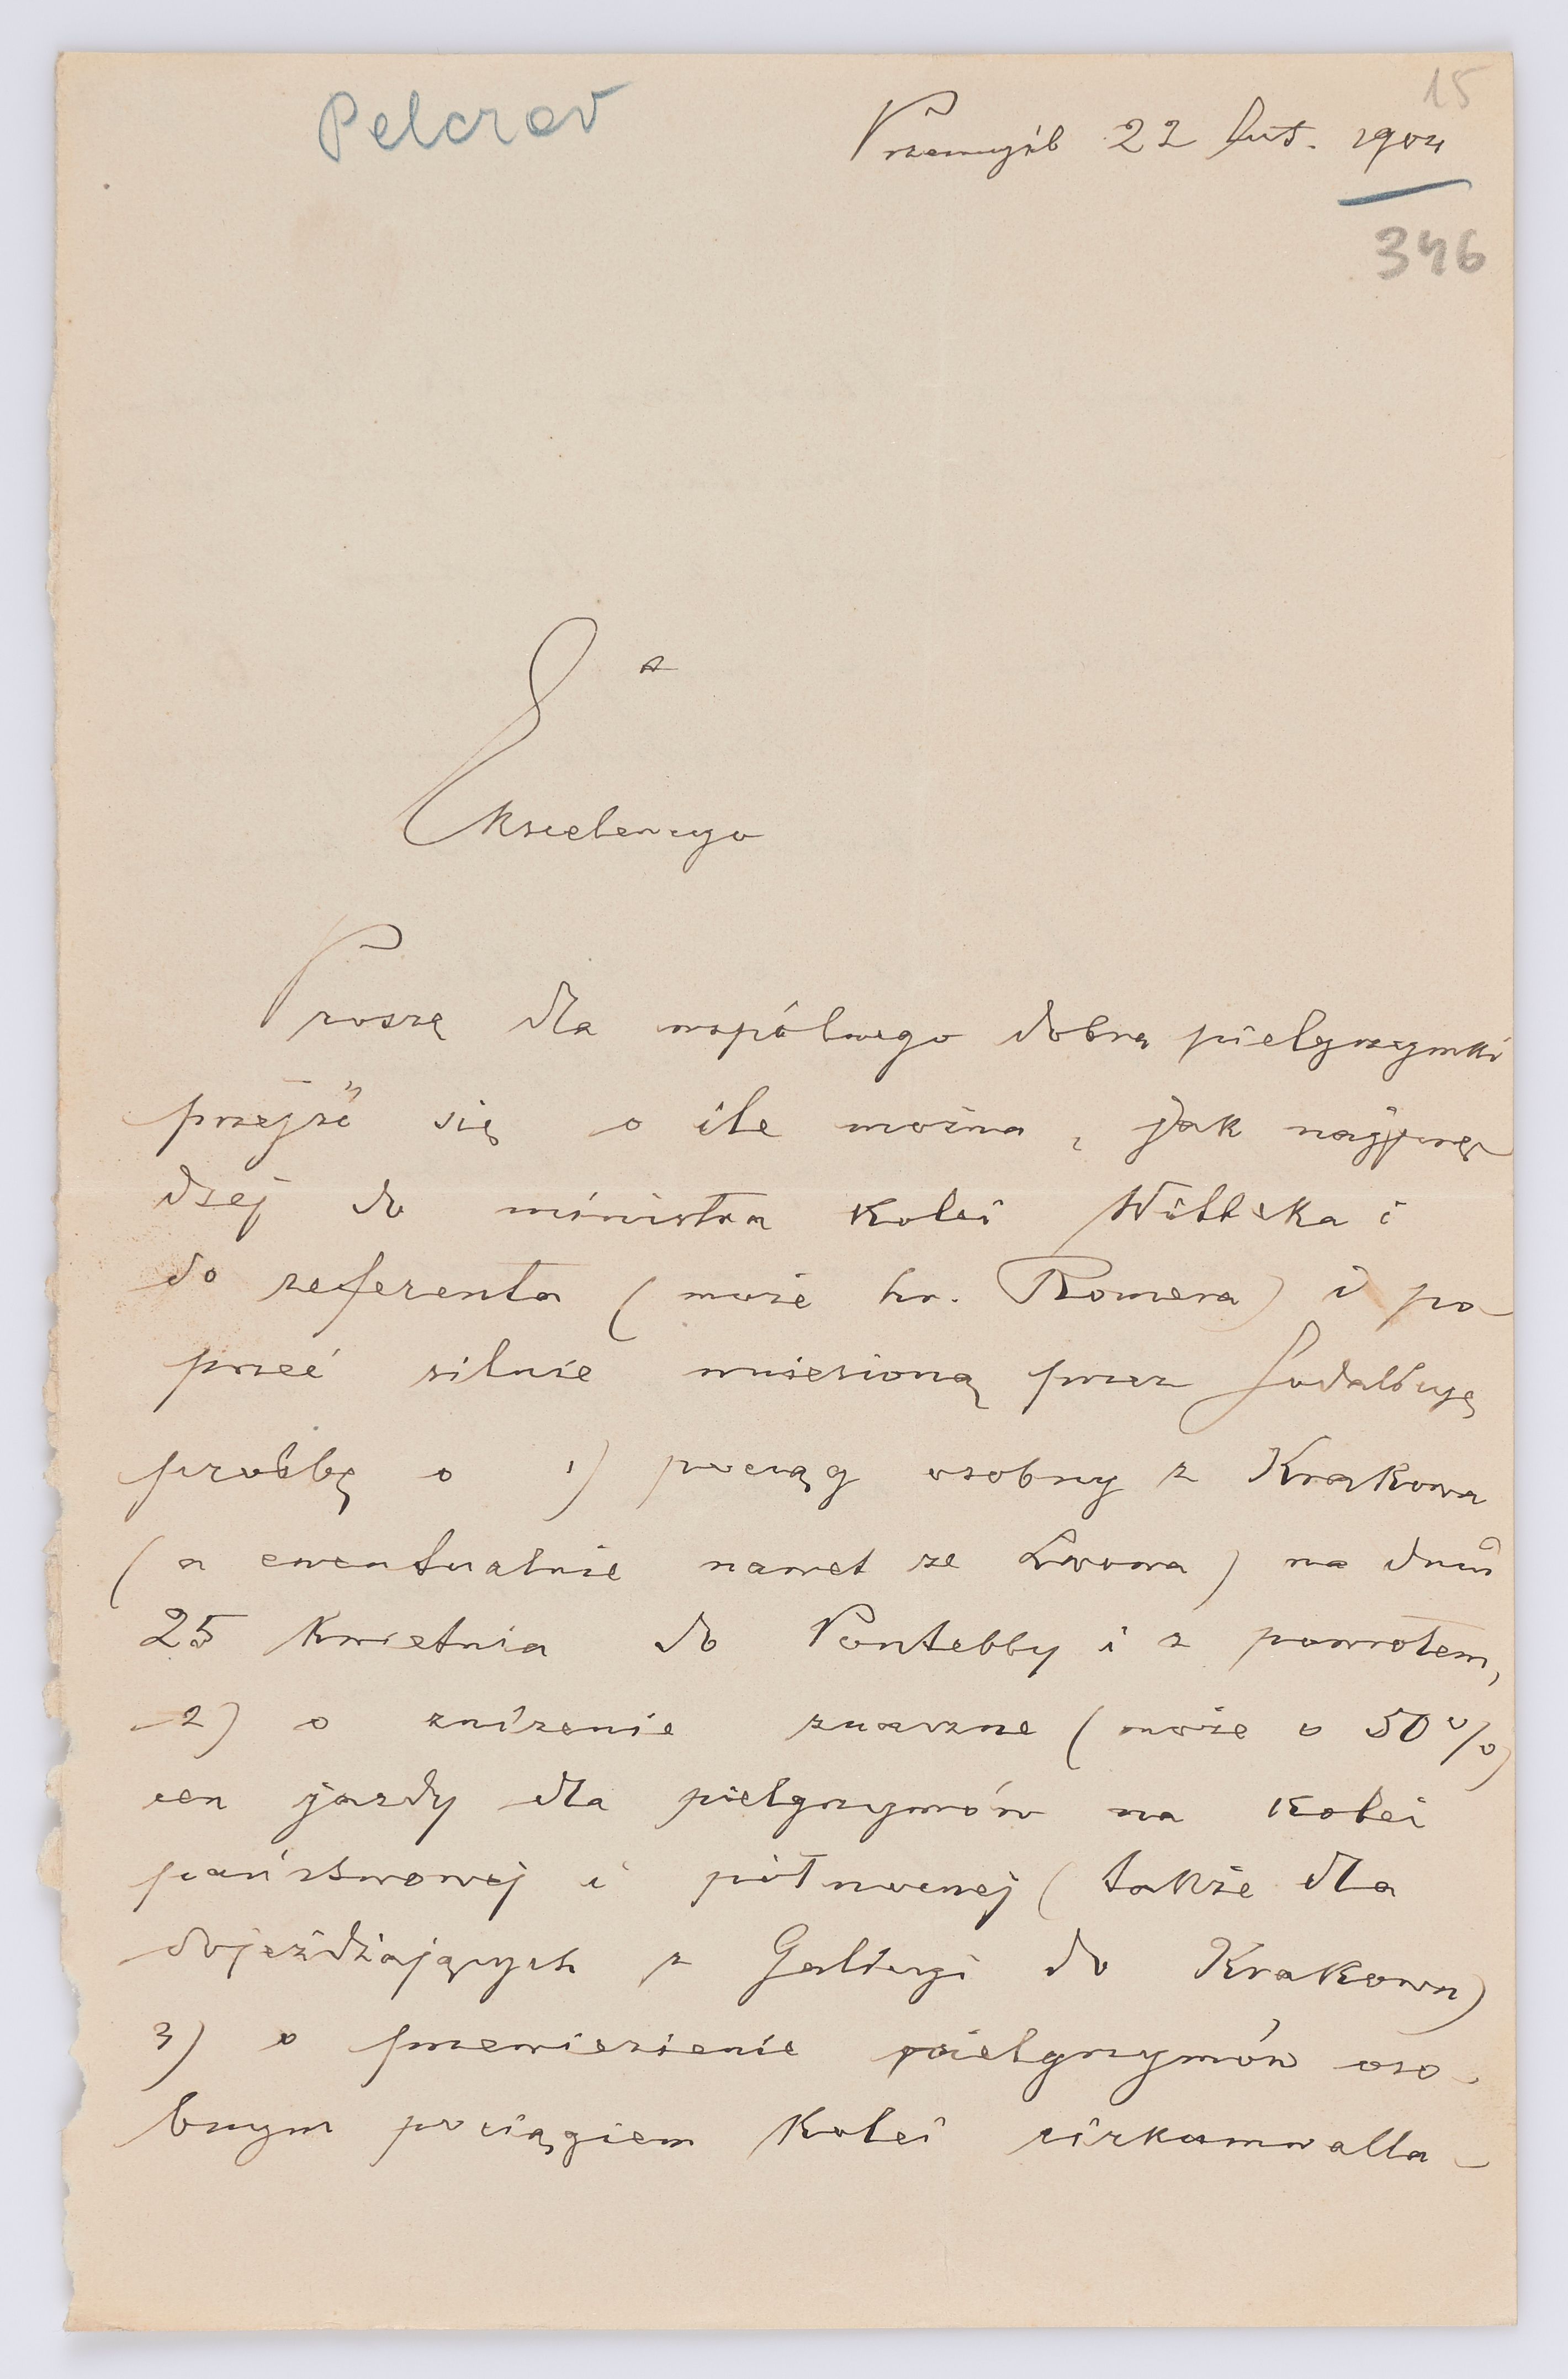 15
Pelczar
Przemyśl 22 lut. 1904
346
Ekscelencyo
Proszę dla wspólnego dobra pielgrzymki
przejść się o ile można, jak najprę
dzej do ministra kolei Witteka i
do referenta (może hr. Romera) i po-
przeć silnie wniesioną przez Sodalicyę
prośbę o 1) pociąg osobny z Krakowa
(a ewentualnie nawet ze Lwowa) na dniu
25 kwietnia do Pontebby i z powrotem,
2) o zniżenie znaczne (może o 50%)
cen jazdy dla pielgrzymów na kolei
państwowej i północnej (także dla
dojeżdżających z Galicyi do Krakowa)
3) o przewiezienie pielgrzymów oso-
bnym pociągiem kolei cirkumwalla-